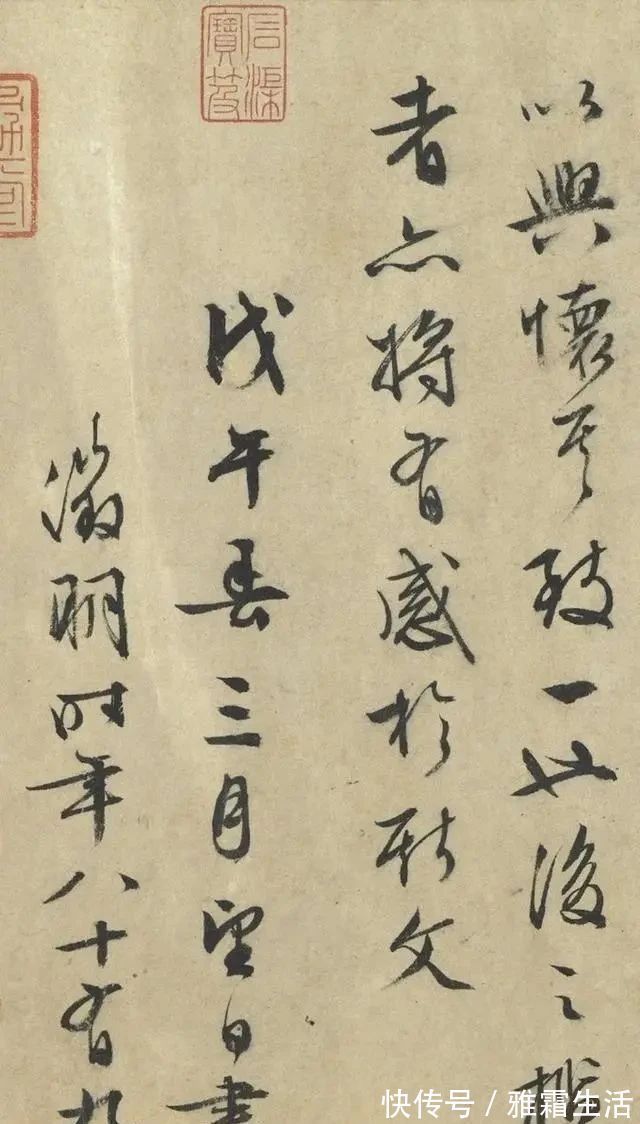 以興懷其致一也後之攬
者亦將有感於斯文
戊午春三月望日書
徵明時年八十有九
快传号/雅霜生活